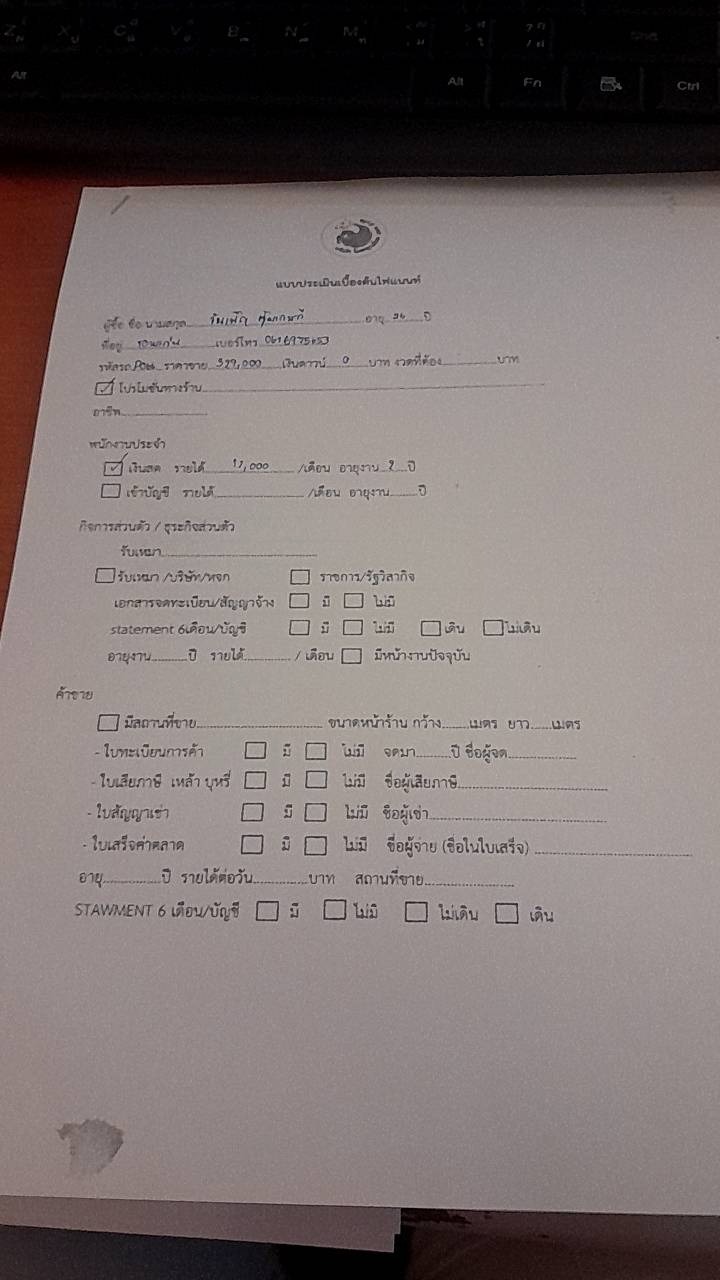 แบบประเมินเบื้องต้นไฟแนนท์
ผู้ซื้อ ชื่อ นามสกุล อายุ 26 ปี
ที่อยู่ ขอนแก่น เบอร์โทร
รหัสรถ ราคาขาย 329,000 เงินดาวน์ 0 บาท งวดที่ต้อง บาท
โปรโมชั่นทางร้าน
อาชีพ
พนักงานประจำ
เงินสด รายได้ 17,000 /เดือน อายุงาน 2 ปี
เข้าบัญชี รายได้ /เดือน อายุงาน ปี
กิจการส่วนตัว / ธุระกิจส่วนตัว
รับเหมา
รับเหมา /บริษัท/หจก ราชการ/รัฐวิสากิจ
เอกสารจดทะเบียน/สัญญาจ้าง มี ไม่มี
statement 6เดือน/บัญชี มี ไม่มี เดิน ไม่เดิน
อายุงาน ปี รายได้ / เดือน มีหน้างานปัจจุบัน
ค้าขาย
มีสถานที่ขาย ขนาดหน้าร้าน กว้าง เมตร ยาว เมตร
- ใบทะเบียนการค้า มี ไม่มี จดมา ปี ชื่อผู้จด
- ใบเสียภาษี เหล้า บุหรี่ มี ไม่มี ชื่อผู้เสียภาษี
- ใบสัญญาเช่า มี ไม่มี ชื่อผู้เช่า
- ใบเสร็จค่าตลาด มี ไม่มี ชื่อผู้จ่าย (ชื่อในใบเสร็จ)
อายุ ปี รายได้ต่อวัน บาท สถานที่ขาย
STAWMENT 6 เดือน/บัญชี มี ไม่มี ไม่เดิน เดิน